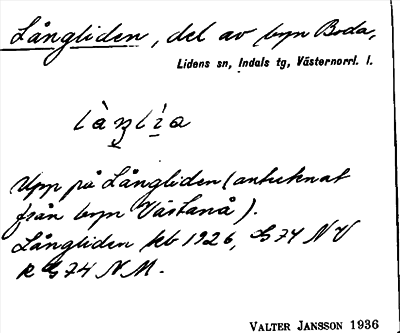 Långliden, del av byn Boda,
Lidens sn, Indals tg, Västernorrl. l.
làŋlìa
Upp på Långliden (antecknat
från byn Västanå).
Långliden kb 1926, G 74 NV
k G 74 NM.
VALTER JANSSON 1936